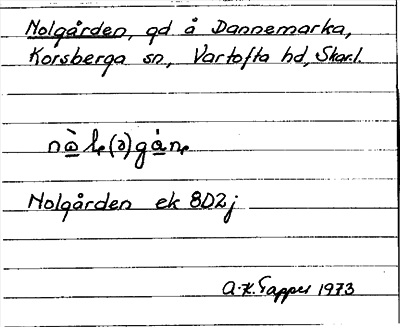 Nolgården, gd å Dannemarka,
Korsberga sn, Vartofta hd, Skar.l.
nò̲l̥(ə)gå̲n̥
Nolgården ek 8D2j
A.-K. Tapper 1973